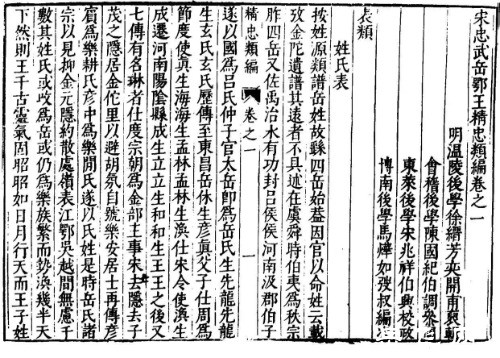 宋忠武岳鄂王精忠類編卷之一
明溫陵後學徐縉芳奕開甫裒輯
會稽後學陳國紀伯調參
東萊後學宋兆祥伯興校政
博南後學馬燁如弢叔編
表類
姓氏表
按姓源類譜岳姓故緜四岳始蓋因官以命姓云載
攷金陀遺譜其遠者不具述在虞舜時伯夷為秩宗
胙四岳又佐禹治水有功封呂侯侯河南汲郡伯子
精忠類編 卷之一
遂以國為呂氏仲子官太岳卽為岳氏生先龍先龍
生玄氏玄氏歷傳至東昌岳休生彥眞父子仕周為
節度使眞生海海生孟林孟林生渙仕宋令使渙生
成遷河南陽陰縣成生立立生和和生王王之後又
七傳有名琳者仕度宗朝為金部主事宋去隱去子
茂之隱居金佗里以避胡氛自號樂安居士再傳彥
賓為樂耕氏彥中為樂閒氏遂以氏姓是時岳氏諸
宗以見抑金元隱約散處嶺表江鄂吳越間無慮千
數其姓氏或攺為岳或仍為樂族繁而勢渙幾半天
下然則王千古靈氣固昭昭如日月行天而王子姓